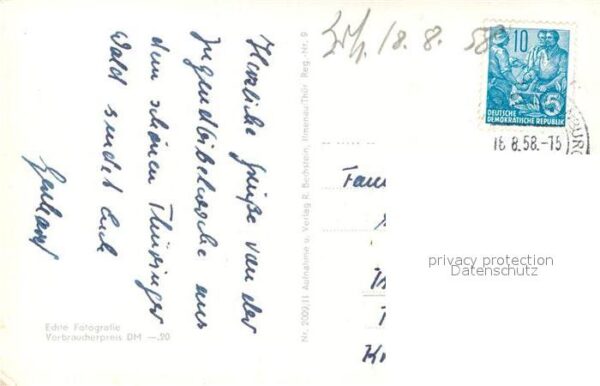 Herzliche Grüße von der
Jugendbibelwoche aus
dem schönen Thüringer
Wald sendet Euch
Gerhard
Echte Fotografie
Verbraucherpreis DM —.20
Nr. 2009/11 Aufnahme u. Verlag R. Bechstein, Ilmenau/Thür. Reg.-Nr. 9
18. 8. 58
10
5
DEUTSCHE
DEMOKRATISCHE REPUBLIK
BURG
16.8.58.-15
Fam
privacy protection
Datenschutz